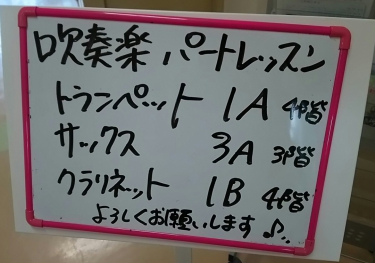 吹奏楽 パートレッスン
トランペット 1A 4階
サックス 3A 3階
クラリネット 1B 4階
よろしくお願いします♪